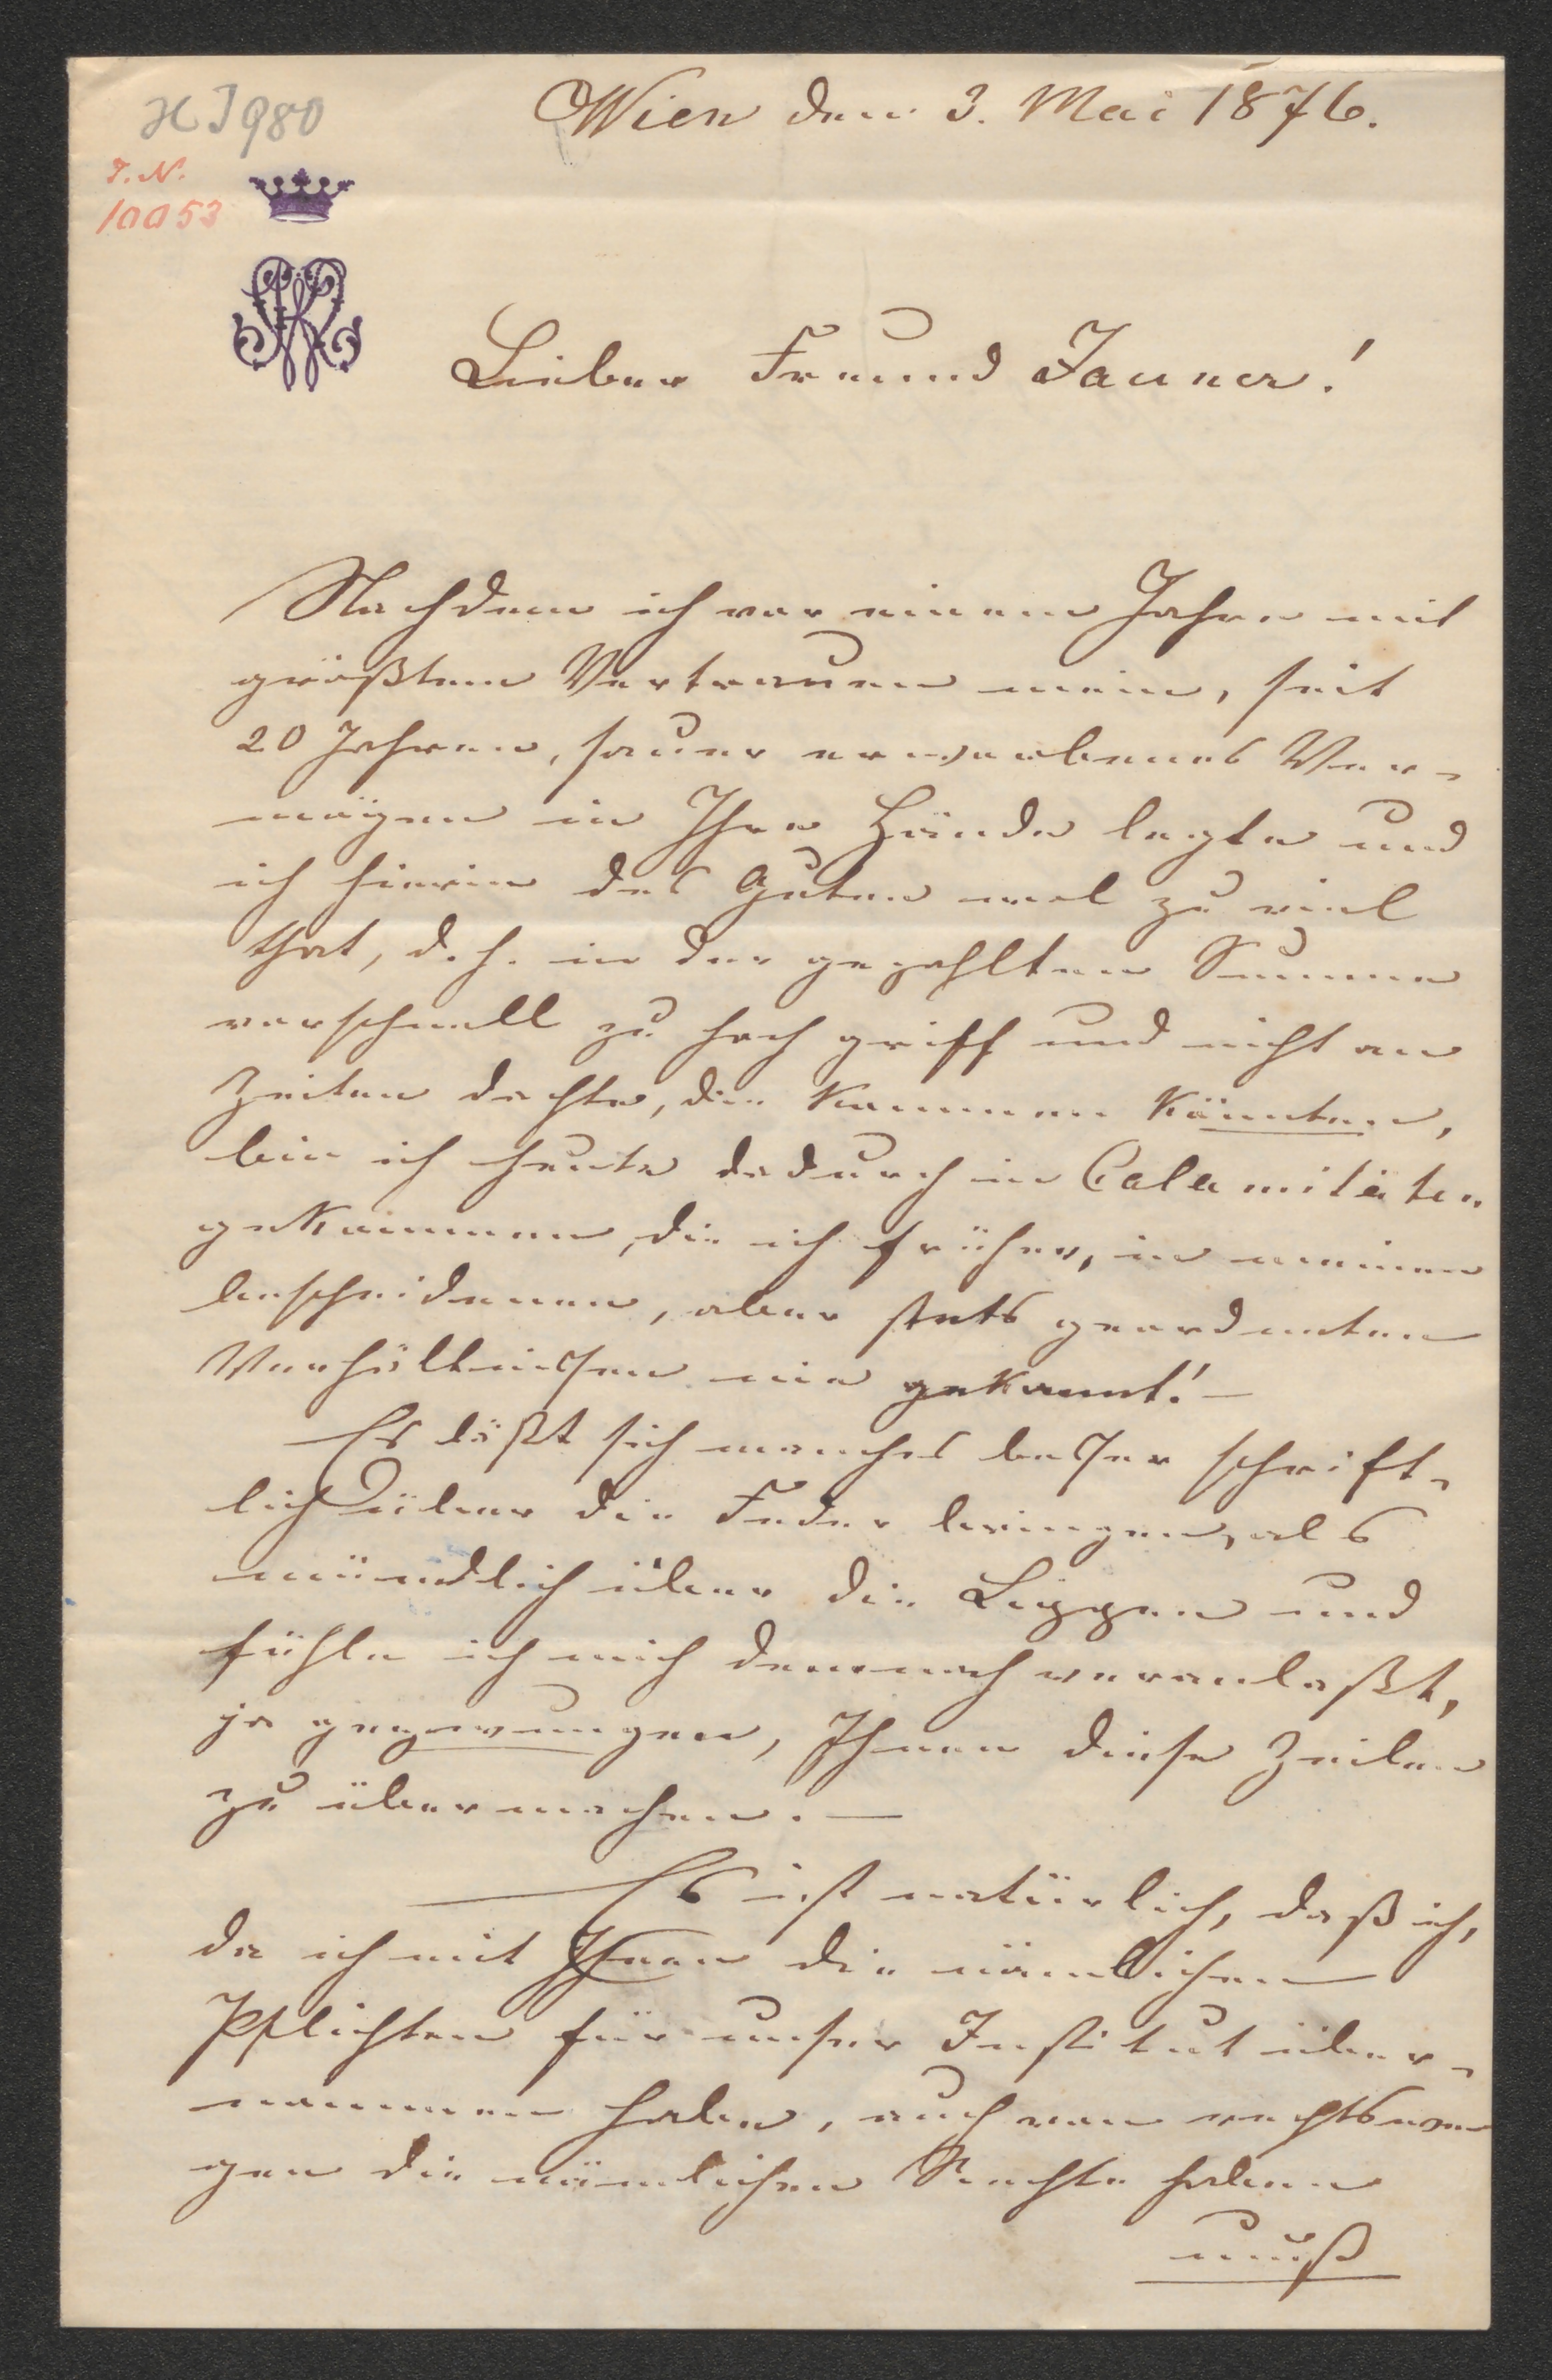 H I 980
Wien den 3. Mai 1876.
I. N.
10053
Lieber Freund Jauner!
Nachdem ich vor einem Jahre mit
größtem Vertrauen mein, seit
20 Jahren, sauer erworbenes Ver-
mögen in Ihre Hände legte und
ich hierin des Guten wol zu viel
that, d. h. in der gezahlten Summe
vorschnell zu hoch griff und nicht an
Zeiten dachte, die kommen könnten,
bin ich heute dadurch in Calamitäten
gekommen, die ich früher, in meinen
bescheidenen, aber stets geordneten
Verhältnissen nie gekannt! —
Es läßt sich manches besser schrift-
lich über die Feder bringen, als
mündlich über die Lippen und
fühle ich mich demnach veranlaßt,
ja gezwungen, Ihnen diese Zeilen
zu übermachen. —
Es ist natürlich, daß ich,
da ich mit Ihnen die nämlichen
Pflichten für unser Institut über-
nommen habe, auch von rechtswe-
gen die nämlichen Rechte haben
muß